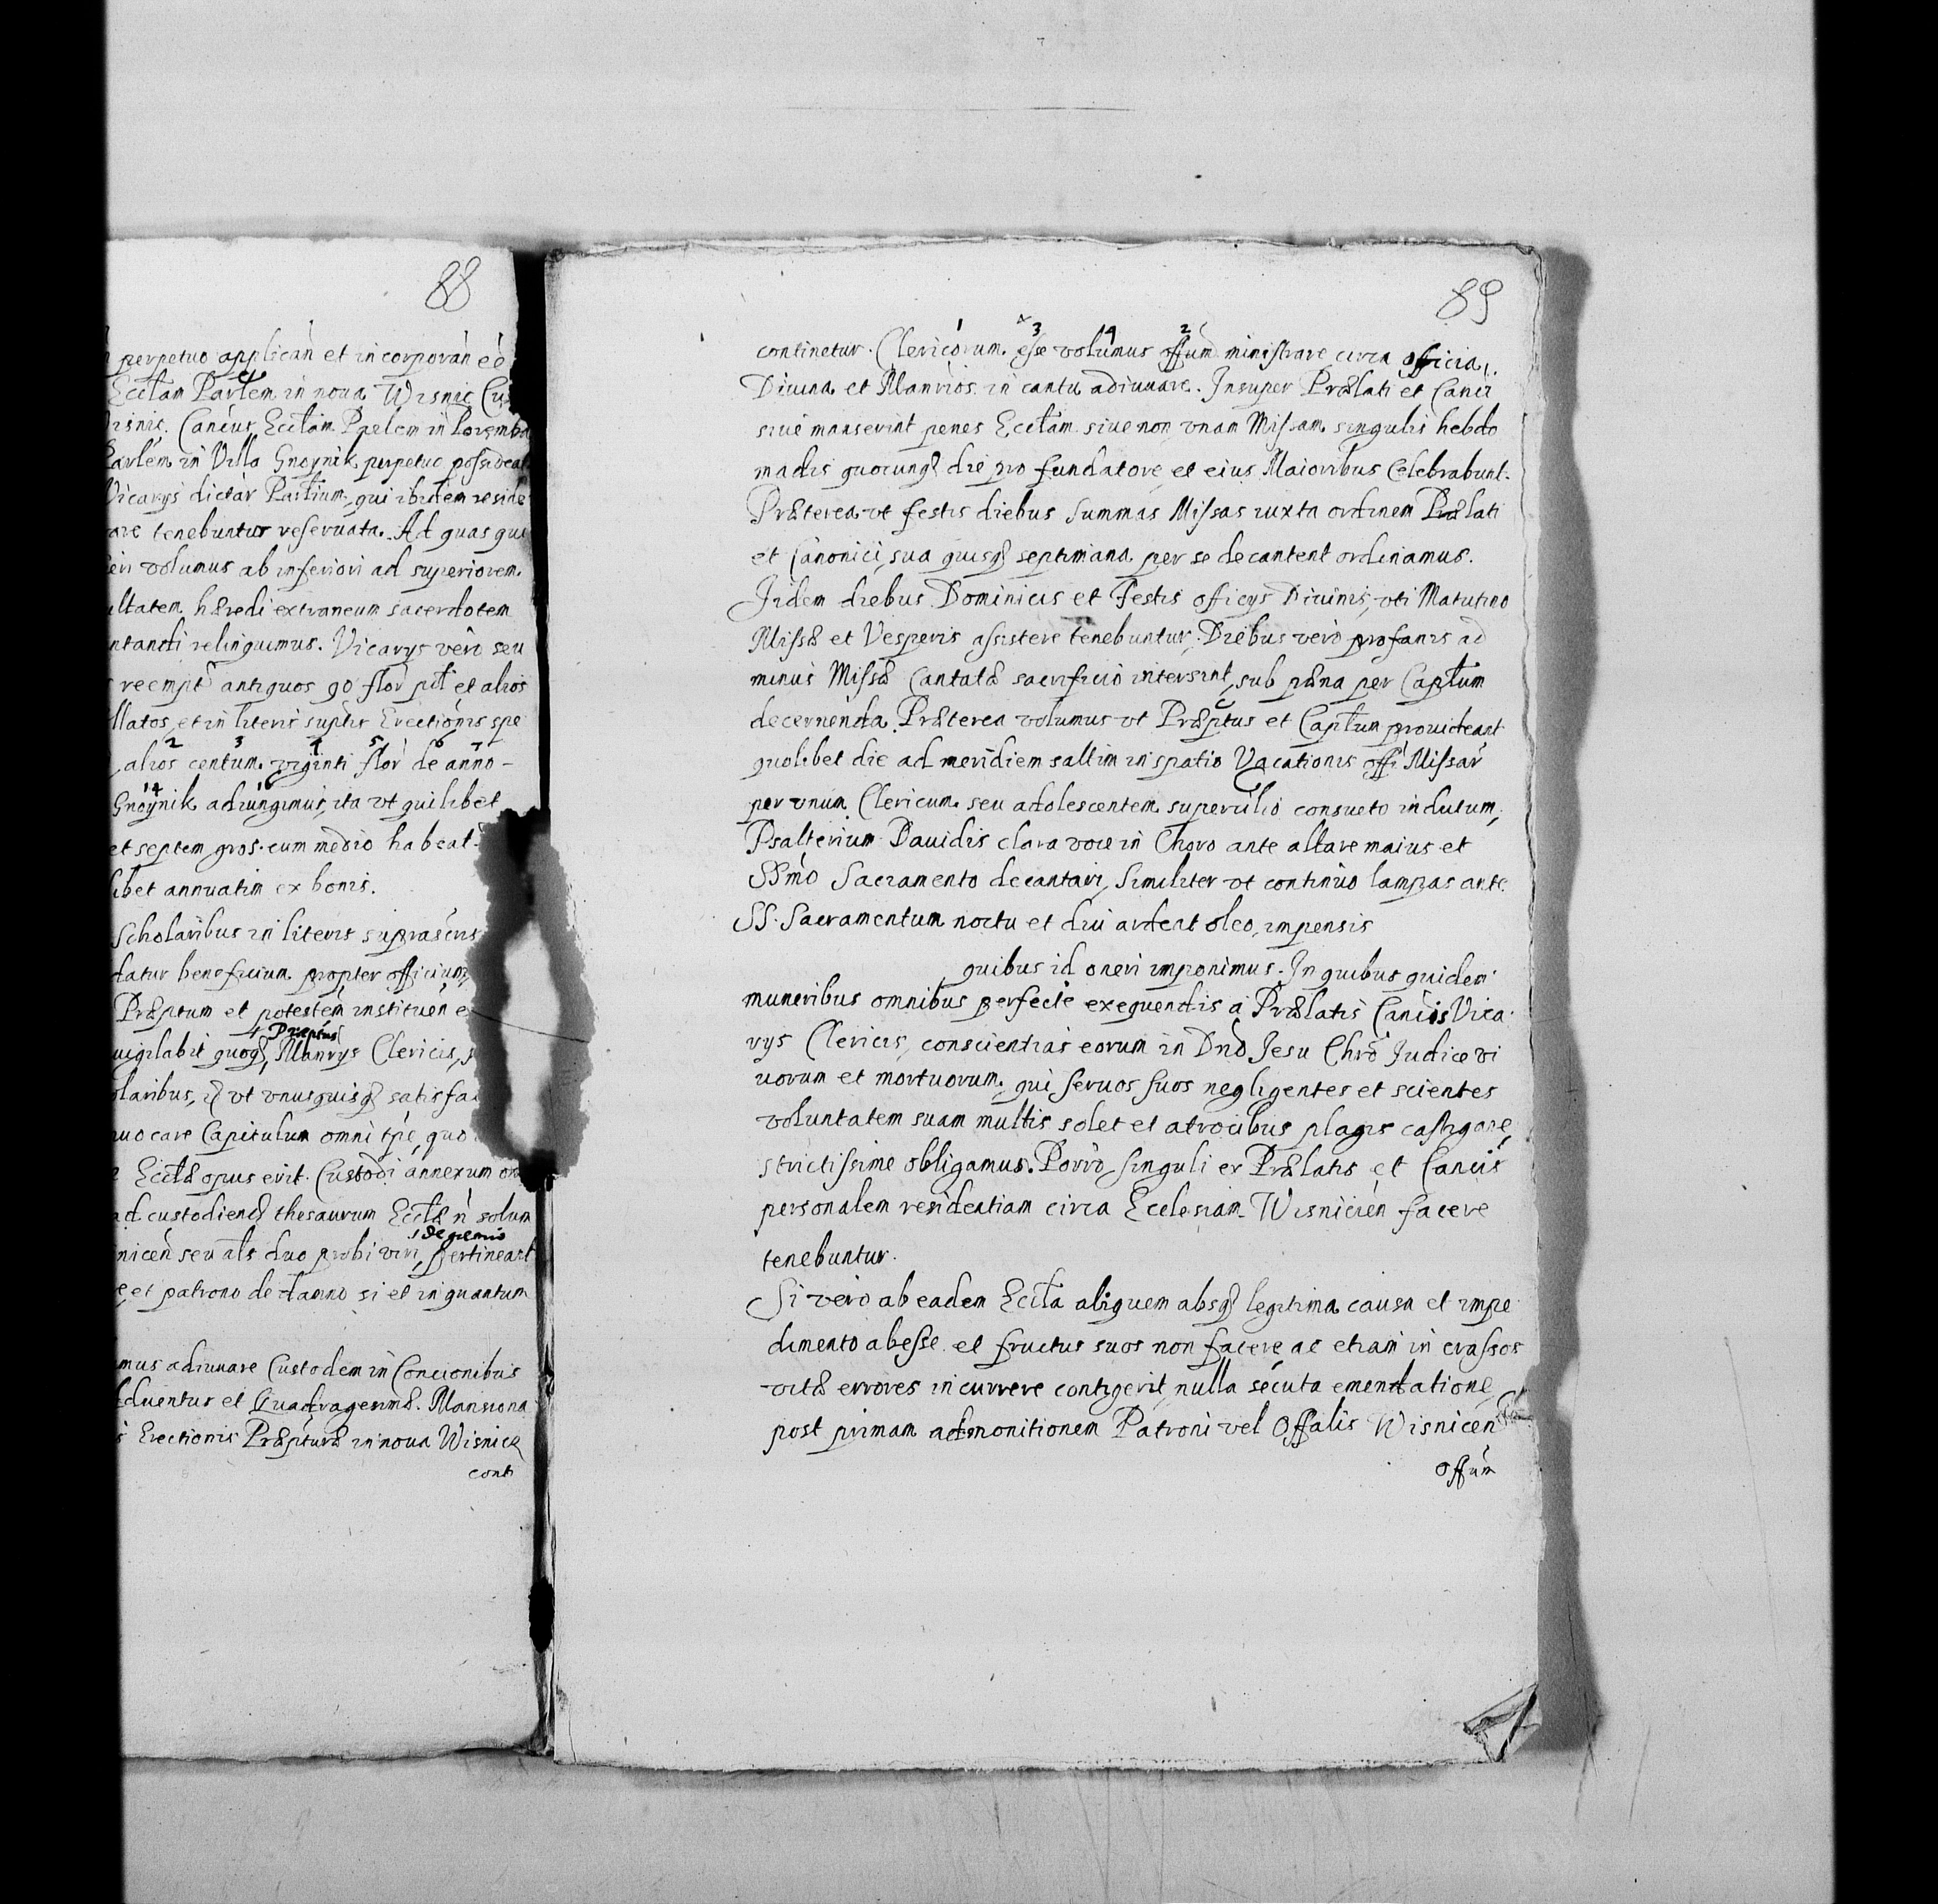 88
perpetuo applicań et incorporań eé
Ecclam Parlem in noua Wisnic Cu
isnic. Cancus Ecclam Pplem in Poremba
Parlem in Villa Gnoynik perpetuo possideat
Vicarys dictar Partium, qui ibidem reside
are tenebuntur reseruata. Ad quas qui
eri volumus ab inferiori ad superiorem.
ultatem hæredi extraneum sacerdotem
ntandi relinquimus. Vicarys vero seu
reempt antiquos 90 flor plt et alios
llatos, et in literis suplir Erectionis spe
2 3 4 5 6 7
alios centum viginti flor de anno -
14
Gnoynik adiungimus, ita vt quilibet
et septem gros. cum medio habeat.
libet annuatim ex bonis.
Scholaribus in literis suprascris
datur beneficium propter officium
Præptum et potestem instituen e
4 Præptus
uigilabit quoq, Manrys Clericis, s
olaribus, vt vnusquisq satisfa
uocare Capitulum omni tpe, quo
Ecclæ opus erit. Custodi annexum on
ad custodiend thesaurum Ecclæ n solum
, de gremio
nicen seu als duo probi viri, pertineant
e, et patrono de damno si et in quantum
mus adiuuare Custodem in Concionibus
Aduentus et Quadragesimæ. Mansiona
s Erectionis Præpturæ in noua Wisnice
conti
89
1 3 4 2
continetur. Clericorum esse volumus offum ministrare circa officia
Diuina et Manrios in cantu adiuuare. Insuper Prælati et Canci
siue manserint penes Ecclam siue non vnam Missam singulis hebdo
madis quocunq die pro fundatore et eius Maioribus Celebrabunt.
Præterea vt festis diebus Summas Missas iuxta ordinem Prælati
et Canonici, sua quisq septimana per se decantent ordinamus.
Iidem diebus Dominicis et Festis officys Diuinis, vti Matutino
Missæ et Vesperis assistere tenebuntur. Diebus vero profanis ad
minus Missæ Cantatæ sacrificio intersint, sub pæna per Capłum
decernenda. Præterea volumus vt Præptus et Capłum prouideant
quolibet die ad meridiem saltim in spatio Vacationis offi Missar
per vnum Clericum seu adolescentem superulio consueto indutum,
Psalterium Dauidis clara voce in Choro ante altare maius et
SSmo Sacramento decantari, Similiter vt continuo lampas ante
SS. Sacramentum noctu et diu ardeat oleo, impensis
quibus id oneri imponimus. In quibus quidem
muneribus omnibus perfecte exequendis a Prælatis Cancis Vica
rys Clericis, conscientias eorum in Dno Jesu Chro Judice vi
uorum et mortuorum, qui seruos suos negligentes et scientes
voluntatem suam multis solet et atrocibus plagis castigare,
strictissime obligamus. Porro singuli ex Prælatis et Cancis
personalem residentiam circa Ecclesiam Wisnicien facere
tenebuntur.
Si vero ab eadem Eccla aliquem absq legitima causa et impe
dimento abesse et fructus suos non facere ac etiam in crassos
vitæ errores incurrere contigerit, nulla secuta emendatione
post primam admonitionem Patroni vel Offalis Wisnicen
offum